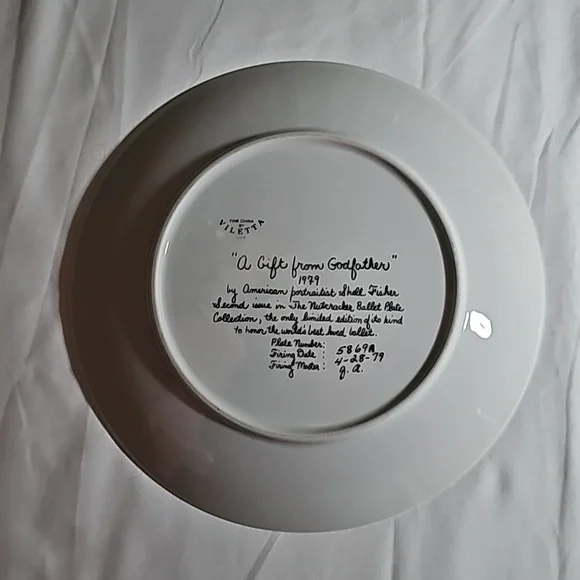 FINE CHINA
BY
VILETTA
"A Gift from Godfather"
1979
by American portraitist Shell Fisher
Second issue in The Nutcracker Ballet Plate
Collection, the only limited edition of its kind
to honor the world's best loved ballet.
Plate Number: 5869A
Firing Date: 4-28-79
Firing Master: g. a.